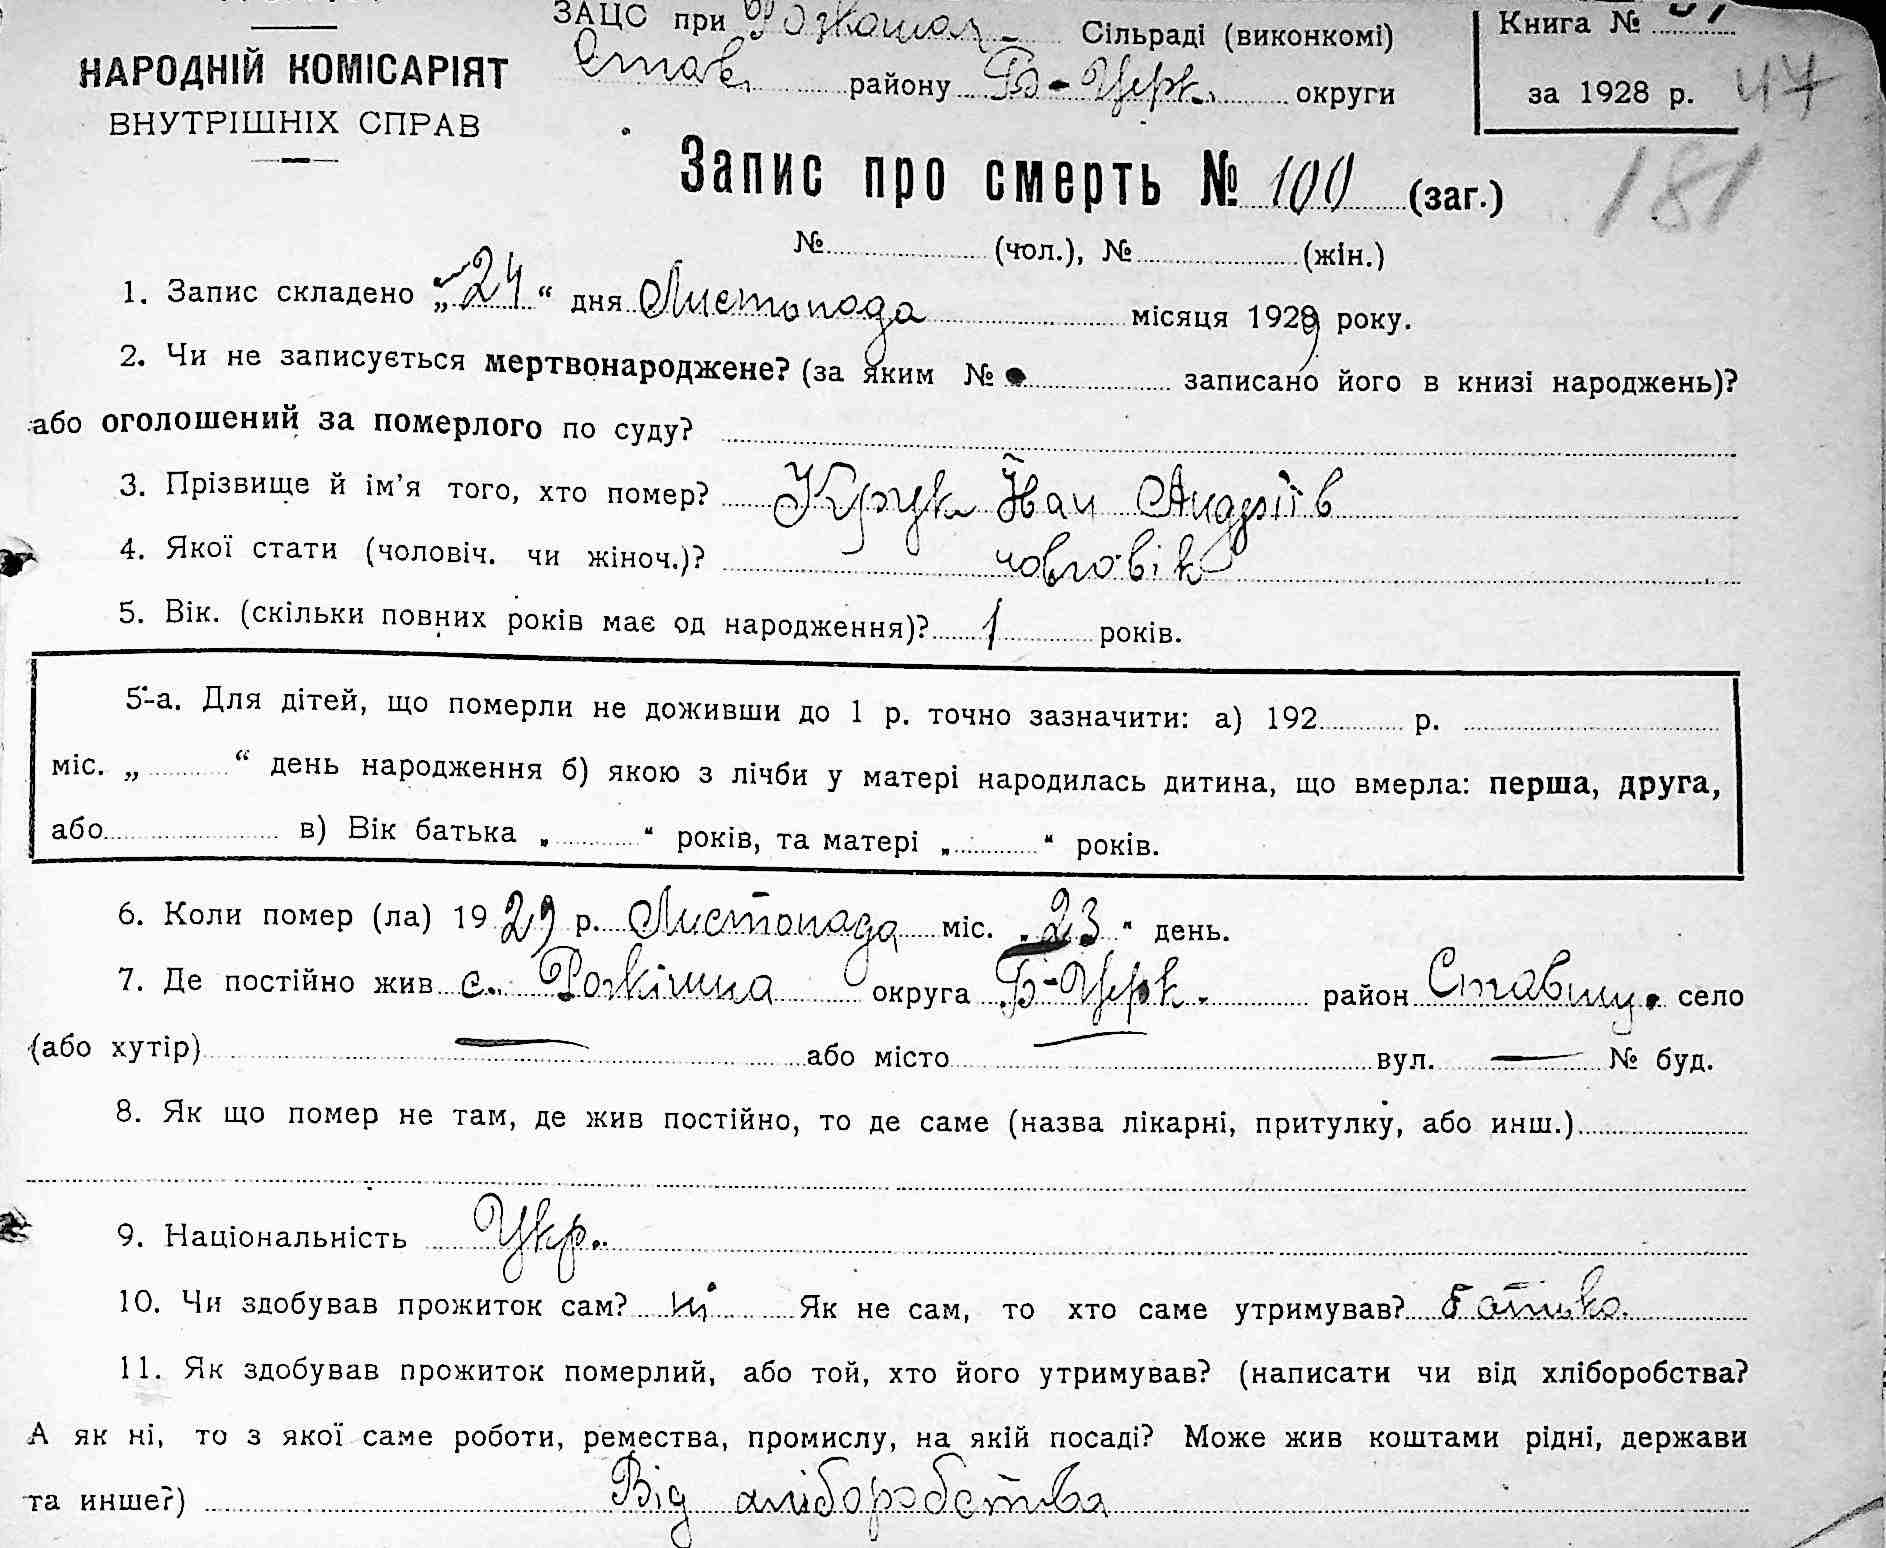 ЗАЦС при Розкошах- Сільраді (виконкомі)
Став. району Б-Церк. округи
Книга №
за 1928 р. 47
НАРОДНІЙ КОМІСАРІЯТ
ВНУТРІШНІХ СПРАВ
Запис про смерть № 100 (заг.)
181
№ (чол.), № (жін.)
1. Запис складено „24“ дня Листопада місяця 1929 року.
2. Чи не записується мертвонароджене? (за яким № записано його в книзі народжень)?
або оголошений за померлого по суду?
3. Прізвище й ім'я того, хто помер? Крук Іван Андріїв
4. Якої стати (чоловіч. чи жіноч.)? чоловік
5. Вік. (скільки повних років має од народження)? 1 років.
5-а. Для дітей, що померли не доживши до 1 р. точно зазначити: а) 192 р.
міс. „ “ день народження б) якою з лічби у матері народилась дитина, що вмерла: перша, друга,
або в) Вік батька „ “ років, та матері „ “ років.
6. Коли помер (ла) 1929 р. Листопада міс. „23“ день.
7. Де постійно жив с. округа Б-Церк. район Ставищ. село
(або хутір) — або місто — вул. — № буд.
8. Як що помер не там, де жив постійно, то де саме (назва лікарні, притулку, або инш.)
9. Національність Укр.
10. Чи здобував прожиток сам? ні Як не сам, то хто саме утримував? батько
11. Як здобував прожиток померлий, або той, хто його утримував? (написати чи від хліборобства?
А як ні, то з якої саме роботи, ремества, промислу, на якій посаді? Може жив коштами рідні, держави
та инше?) Від хліборобства